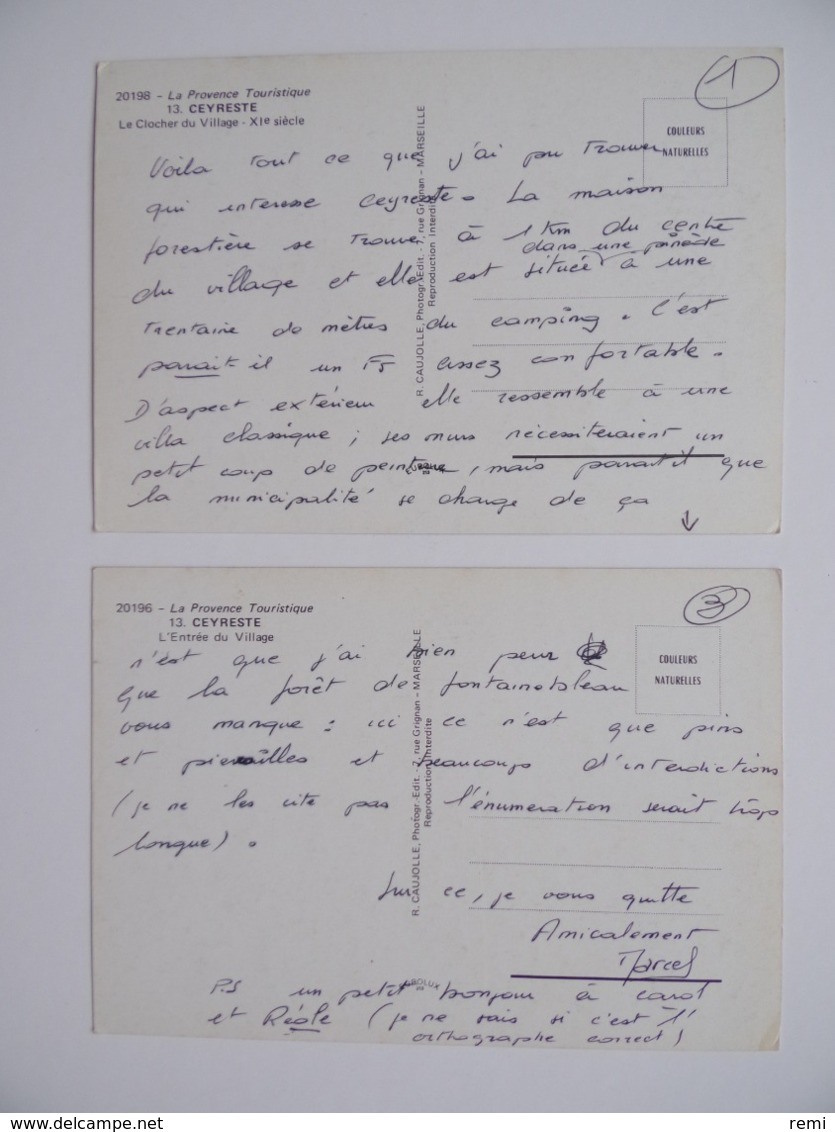 1
20198 - La Provence Touristique
13. CEYRESTE
Le Clocher du Village - XIe siècle
COULEURS
NATURELLES
R. CAUJOLLE, Photogr.-Edit. - 7, rue Grignan - MARSEILLE
Reproduction Interdite
Voila tout ce que j'ai pu trouver
qui interesse Ceyreste. La maison
forestière se trouve à 1 Km du centre
dans une pinède
du village et elle est située à une
trentaine de mètres du camping. C'est
parait-il un F5 assez confortable.
D'aspect extérieur elle ressemble à une
villa classique ; ses murs nécessiteraient un
petit coup de peinture, mais parait il que
la municipalité se charge de ça
3
20196 - La Provence Touristique
13. CEYRESTE
L'Entrée du Village
COULEURS
NATURELLES
R. CAUJOLLE, Photogr.-Edit. - 7, rue Grignan - MARSEILLE
Reproduction Interdite
n'est que j'ai bien peur
que la forêt de fontainebleau
vous manque : ici ce n'est que pins
et pierrailles et beaucoups d'interdictions
(je ne les cite pas l'énumeration serait trop
longue).
Sur ce, je vous quitte
Amicalement
Marcel
P.S un petit bonjour à carol
et Réole (je ne sais si c'est l'
orthographe correct)
remi